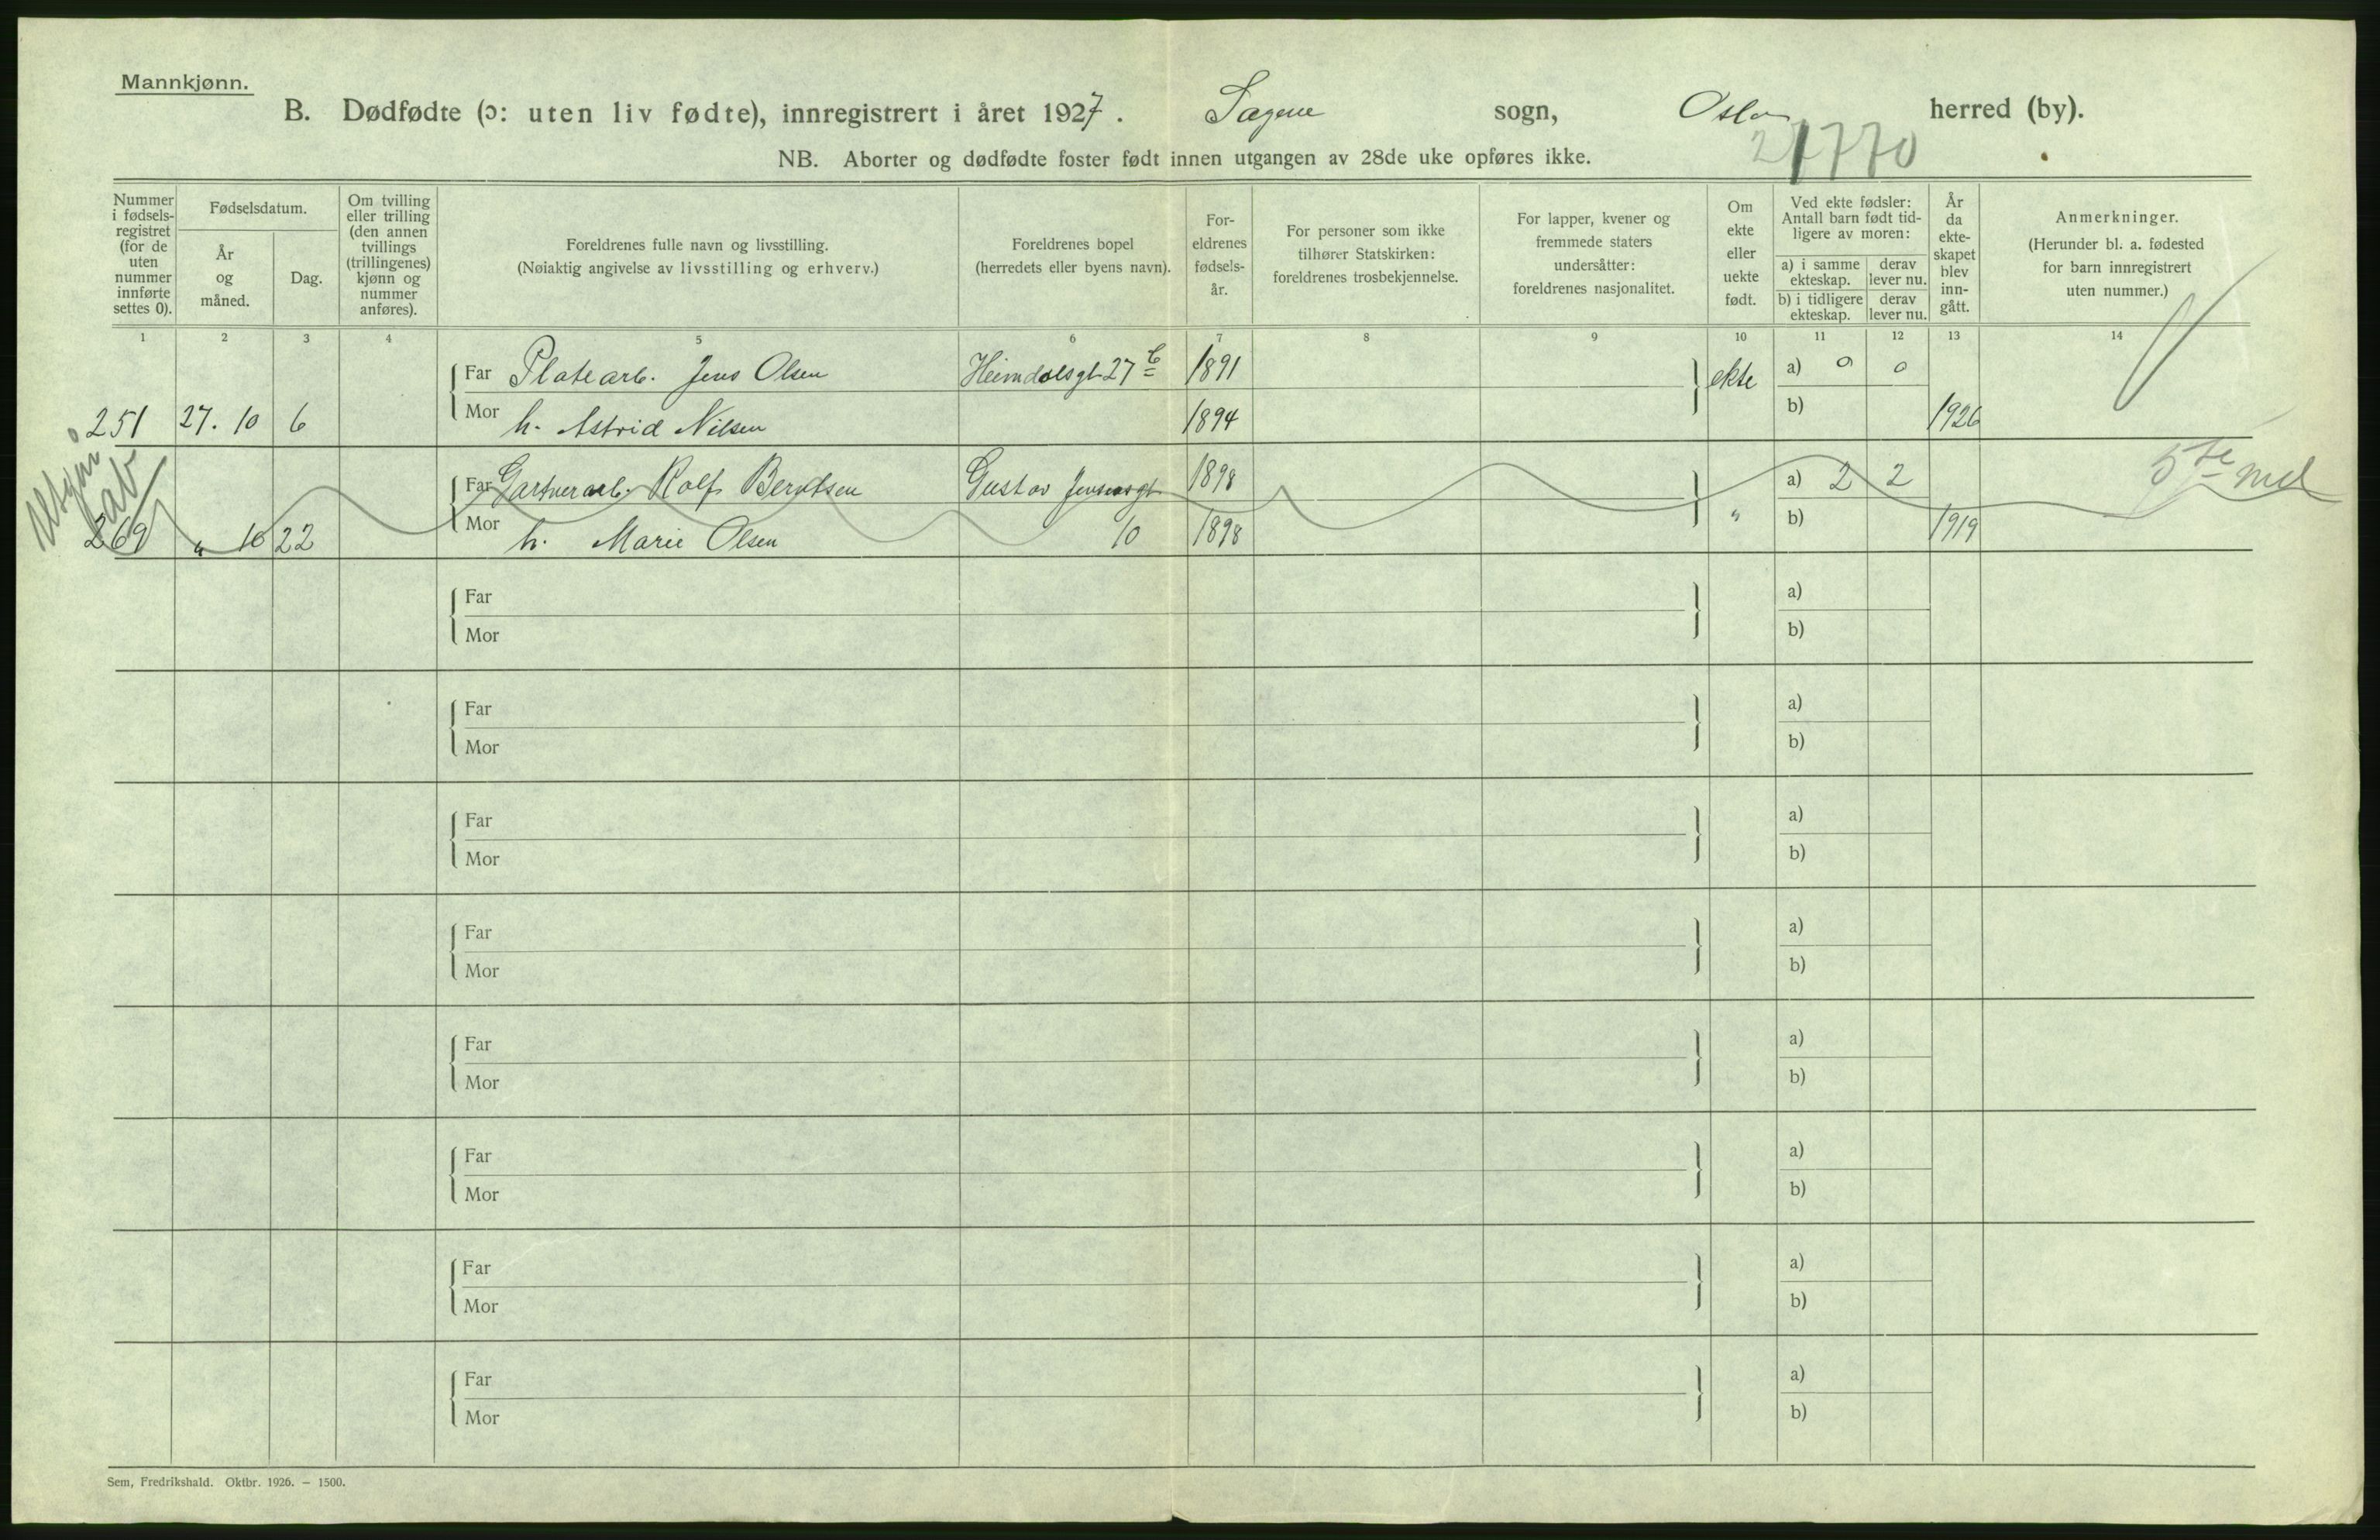 Mannkjønn.
B. Dødfødte (ɔ: uten liv fødte), innregistrert i året 1927. Sagene sogn, Oslo herred (by).
21770
NB. Aborter og dødfødte foster født innen utgangen av 28de uke opføres ikke.
Nummer i fødsels-registret (for de uten nummer innførte settes 0).
Fødselsdatum.
År og måned.
Dag.
Om tvilling eller trilling (den annen tvillings (trillingenes) kjønn og nummer anføres).
Foreldrenes fulle navn og livsstilling.
(Nøiaktig angivelse av livsstilling og erhverv.)
Foreldrenes bopel
(herredets eller byens navn).
For-eldrenes fødsels-år.
For personer som ikke tilhører Statskirken: foreldrenes trosbekjennelse.
For lapper, kvener og fremmede staters undersåtter: foreldrenes nasjonalitet.
Om ekte eller uekte født.
Ved ekte fødsler: Antall barn født tid-ligere av moren:
a) i samme ekteskap.
derav lever nu.
b) i tidligere ekteskap.
derav lever nu.
År da ekte-skapet blev inn-gått.
Anmerkninger.
(Herunder bl. a. fødested for barn innregistrert uten nummer.)
1 2 3 4 5 6 7 8 9 10 11 12 13 14
Far Platearb. Jens Olsen Heimdalsgt 27 b 1891 ekte a) 0 0
251 27. 10 6 Mor h. Astrid Nilsen 1894 b) 1926
Far Gartnerarb. Rolf Berntsen Gustav Jensensgt 1898 a) 2 2 5te md
269 " 10 22 Mor h. Marie Olsen 10 1898 " b) 1919
Far a)
Mor b)
Far a)
Mor b)
Far a)
Mor b)
Far a)
Mor b)
Far a)
Mor b)
Far a)
Mor b)
Far a)
Mor b)
Far a)
Mor b)
Sem, Fredrikshald. Oktbr. 1926. — 1500.